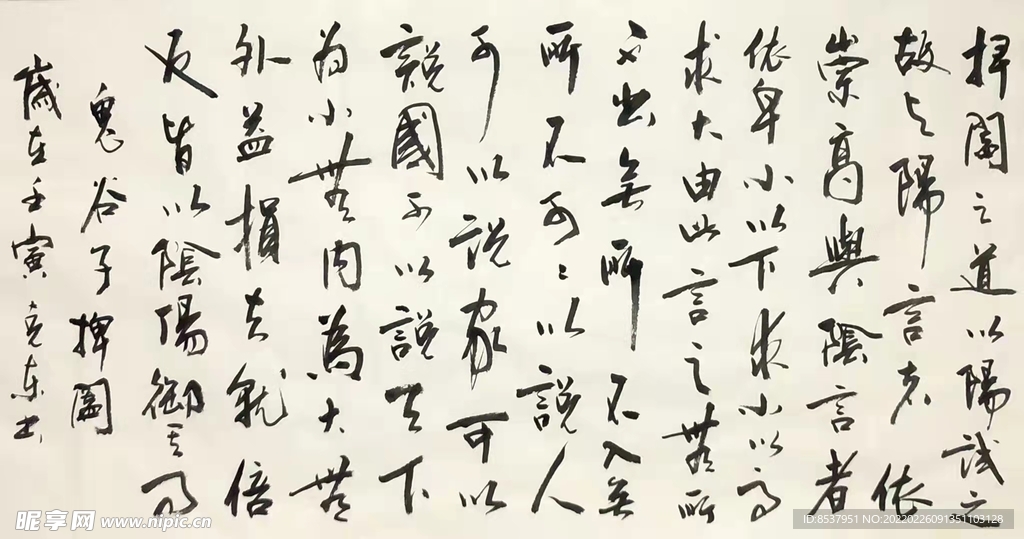 捭闔之道以陽試之
故与陽言者依
崇高與陰言者
依卑小以下求小以高
求大由此言之無所
不出无所不入无
所不可々以說人
可以说家可以
說國可以說天下
为小無内為大無
外益損去就倍
反皆以陰陽御其事
鬼谷子捭闔
歲在壬寅东书
昵享网 www.nipic.cn
ID:8537951 NO:20220226091351103128